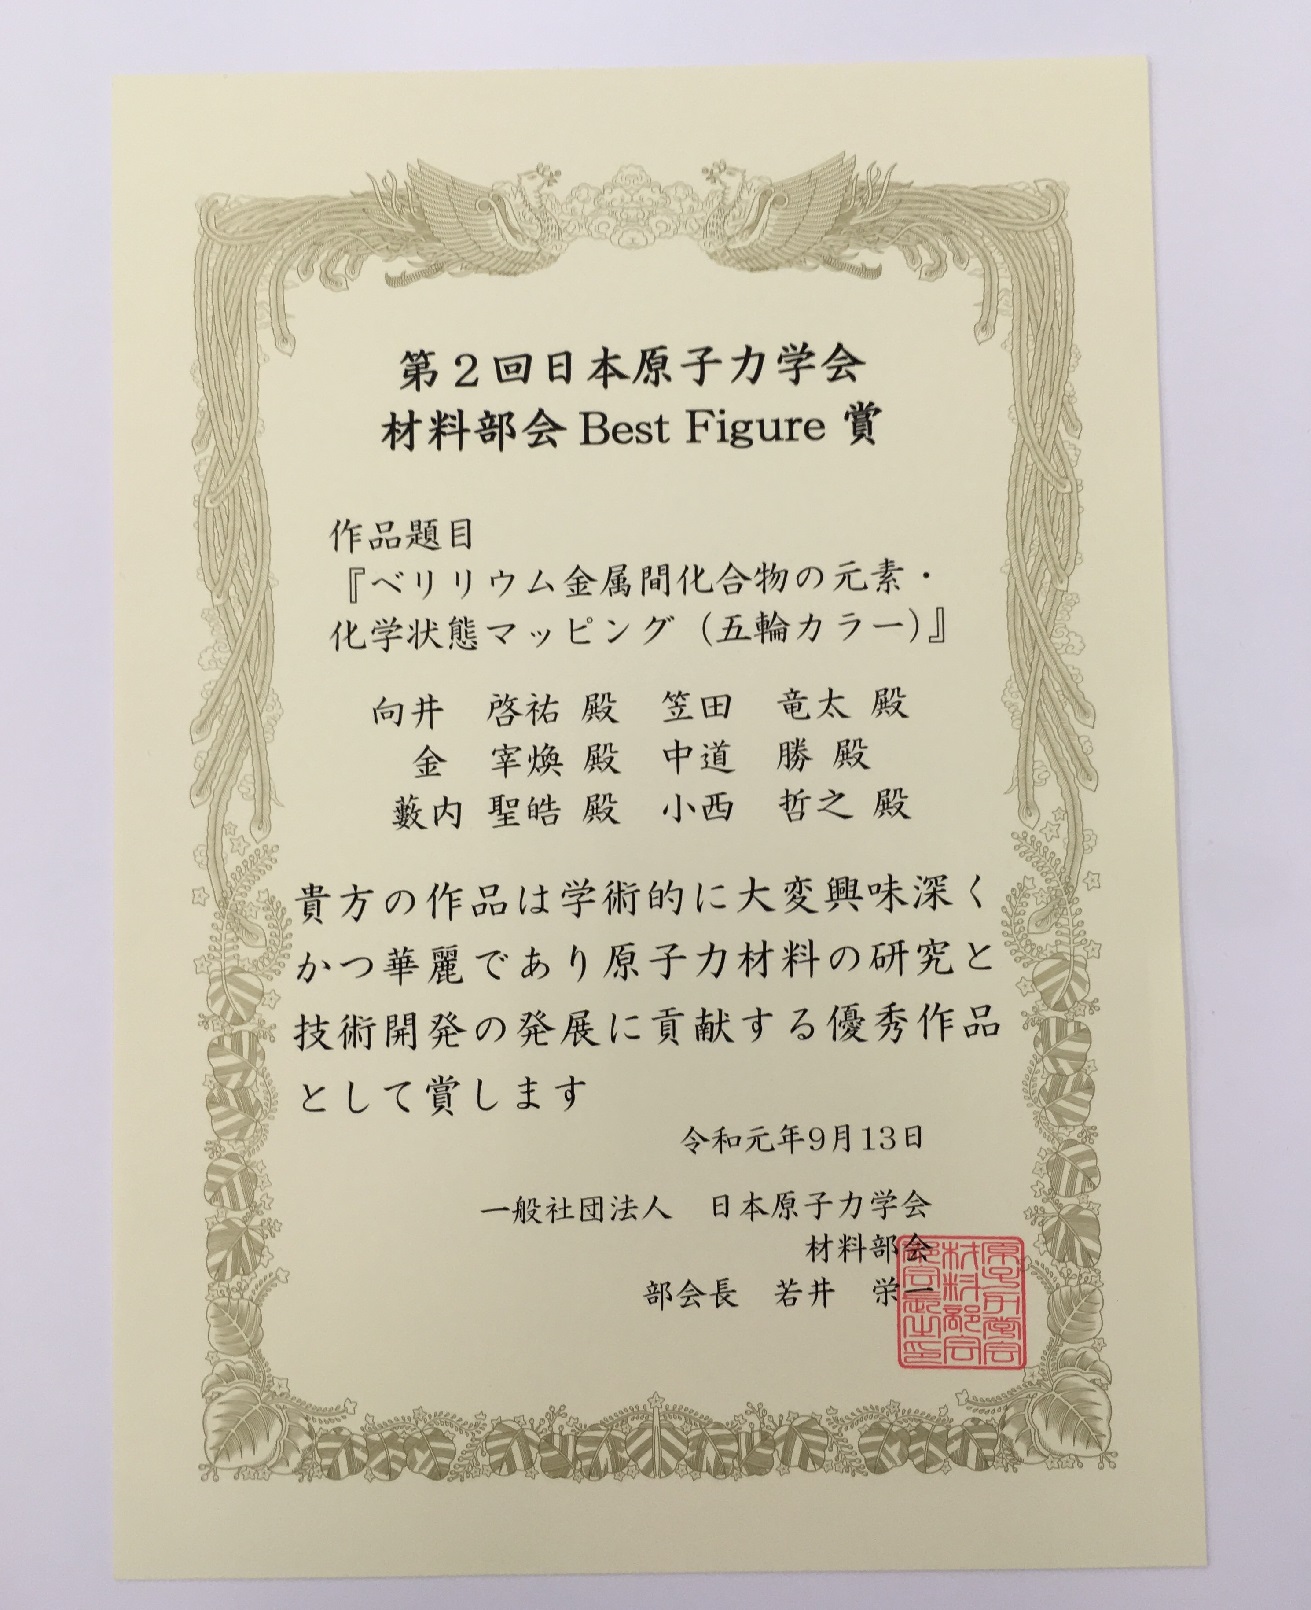 第2回日本原子力学会
材料部会 Best Figure 賞
作品題目
『ベリリウム金属間化合物の元素・
化学状態マッピング（五輪カラー）』
向井　啓祐 殿　笠田　竜太 殿
金　宰煥 殿　中道　勝 殿
藪内 聖皓 殿　小西　哲之 殿
貴方の作品は学術的に大変興味深く
かつ華麗であり原子力材料の研究と
技術開発の発展に貢献する優秀作品
として賞します
令和元年9月13日
一般社団法人　日本原子力学会
材料部会
部会長　若井　栄一
原子力学会
材料部会
部会長之印